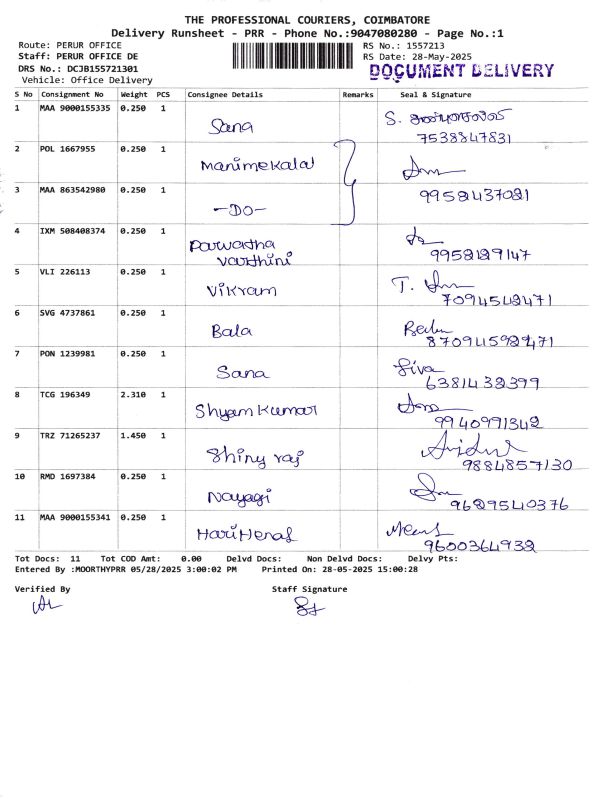 THE PROFESSIONAL COURIERS, COIMBATORE
Delivery Runsheet - PRR - Phone No.:9047080280 - Page No.:1
Route: PERUR OFFICE RS No.: 1557213
Staff: PERUR OFFICE DE RS Date: 28-May-2025
DRS No.: DCJB155721301 DOCUMENT DELIVERY
Vehicle: Office Delivery
S No Consignment No Weight PCS Consignee Details Remarks Seal & Signature
1 MAA 9000155335 0.250 1 Sana S.
7538847831
2 POL 1667955 0.250 1 Manimekalai
3 MAA 863542980 0.250 1 -DO- 9958437081
4 IXM 508408374 0.250 1 Parwatha
Varthini 9958189147
5 VLI 226113 0.250 1 Vikram T.
7094548471
6 SVG 4737861 0.250 1 Bala
87094598471
7 PON 1239981 0.250 1 Sana Siva
6381438399
8 TCG 196349 2.310 1 Shyam Kumar
9940991342
9 TRZ 71265237 1.450 1 Shiny raj
9884857130
10 RMD 1697384 0.250 1 Nayagi
9689540376
11 MAA 9000155341 0.250 1
9600364938
Tot Docs: 11 Tot COD Amt: 0.00 Delvd Docs: Non Delvd Docs: Delvy Pts:
Entered By :MOORTHYPRR 05/28/2025 3:00:02 PM Printed On: 28-05-2025 15:00:28
Verified By Staff Signature